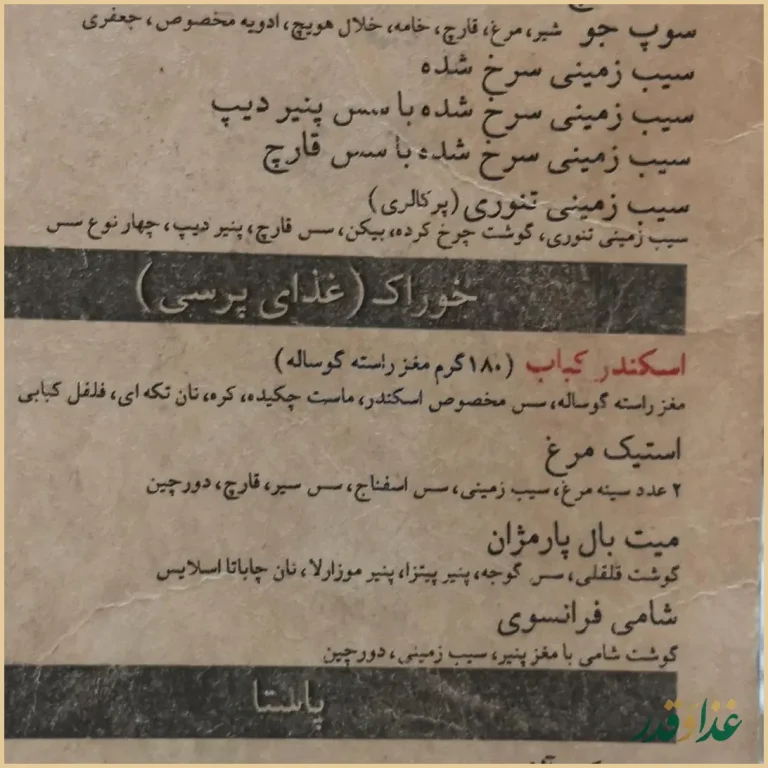 سوپ جو شیر، مرغ، قارچ، خامه، خلال هویج، ادویه مخصوص، جعفری
سیب زمینی سرخ شده
سیب زمینی سرخ شده با سس پنیر دیپ
سیب زمینی سرخ شده با سس قارچ
سیب زمینی تنوری (پر کالری)
سیب زمینی تنوری، گوشت چرخ کرده، بیکن، سس قارچ، پنیر دیپ، چهار نوع سس
خوراک (غذای پرسی)
اسکندر کباب (۱۸۰ گرم مغز راسته گوساله)
مغز راسته گوساله، سس مخصوص اسکندر، ماست چکیده، کره، نان تکه ای، فلفل کبابی
استیک مرغ
۲ عدد سینه مرغ، سیب زمینی، سس اسفناج، سس سیر، قارچ، دورچین
میت بال پارمژان
گوشت قلقلی، سس گوجه، پنیر پیتزا، پنیر موزارلا، نان چاباتا اسلایس
شامی فرانسوی
گوشت شامی با مغز پنیر، سیب زمینی، دورچین
پاستا
غذا و قدر